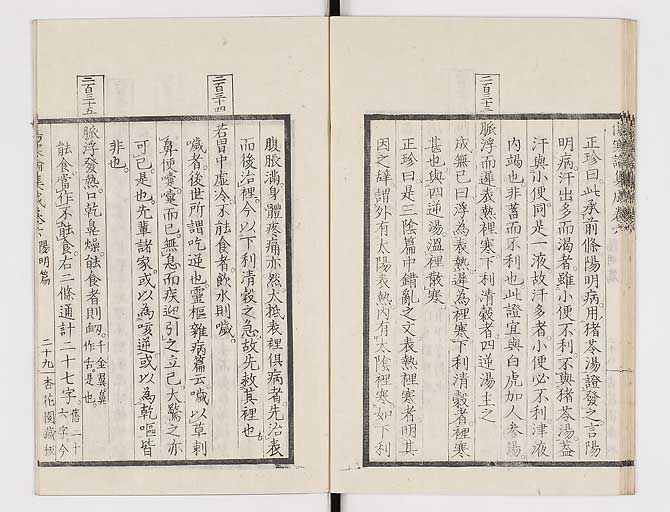 正珍曰此承前條陽明病用猪苓湯證發之言陽
明病汗出多而渴者雖小便不利不與猪苓湯蓋
汗與小便同是一液故汗多者小便必不利津液
內竭也非蓄而不利也此證宜與白虎加人參湯
二百三十三
脈浮而遲表熱裡寒下利清穀者四逆湯主之
成無己曰浮為表熱遲為裡寒下利清穀者裡寒
甚也與四逆湯溫裡散寒
正珍曰是三陰篇中錯亂之文表熱裡寒者明其
因之辞謂外有太陽表熱內有太陰裡寒如下利
腹脹滿身體疼痛亦然大抵表裡俱病者先治表
而後治裡今以下利清穀之急故先救其裡也
二百三十四
若胃中虛冷不能食者飲水則噦
噦者後世所謂吃逆也靈樞雜病篇云噦以草刺
鼻便嚏嚏而已無息而疾迎引之立已大驚之亦
可已是也先輩諸家或以為咳逆或以為乾嘔皆
非也
二百三十五
脈浮發熱口乾鼻燥能食者則衄千金翼鼻
作舌是也
能食當作不能食右二條通計二十七字舊二十
六字今
傷寒論集成卷六 陽明篇
二十九 杏花園藏板